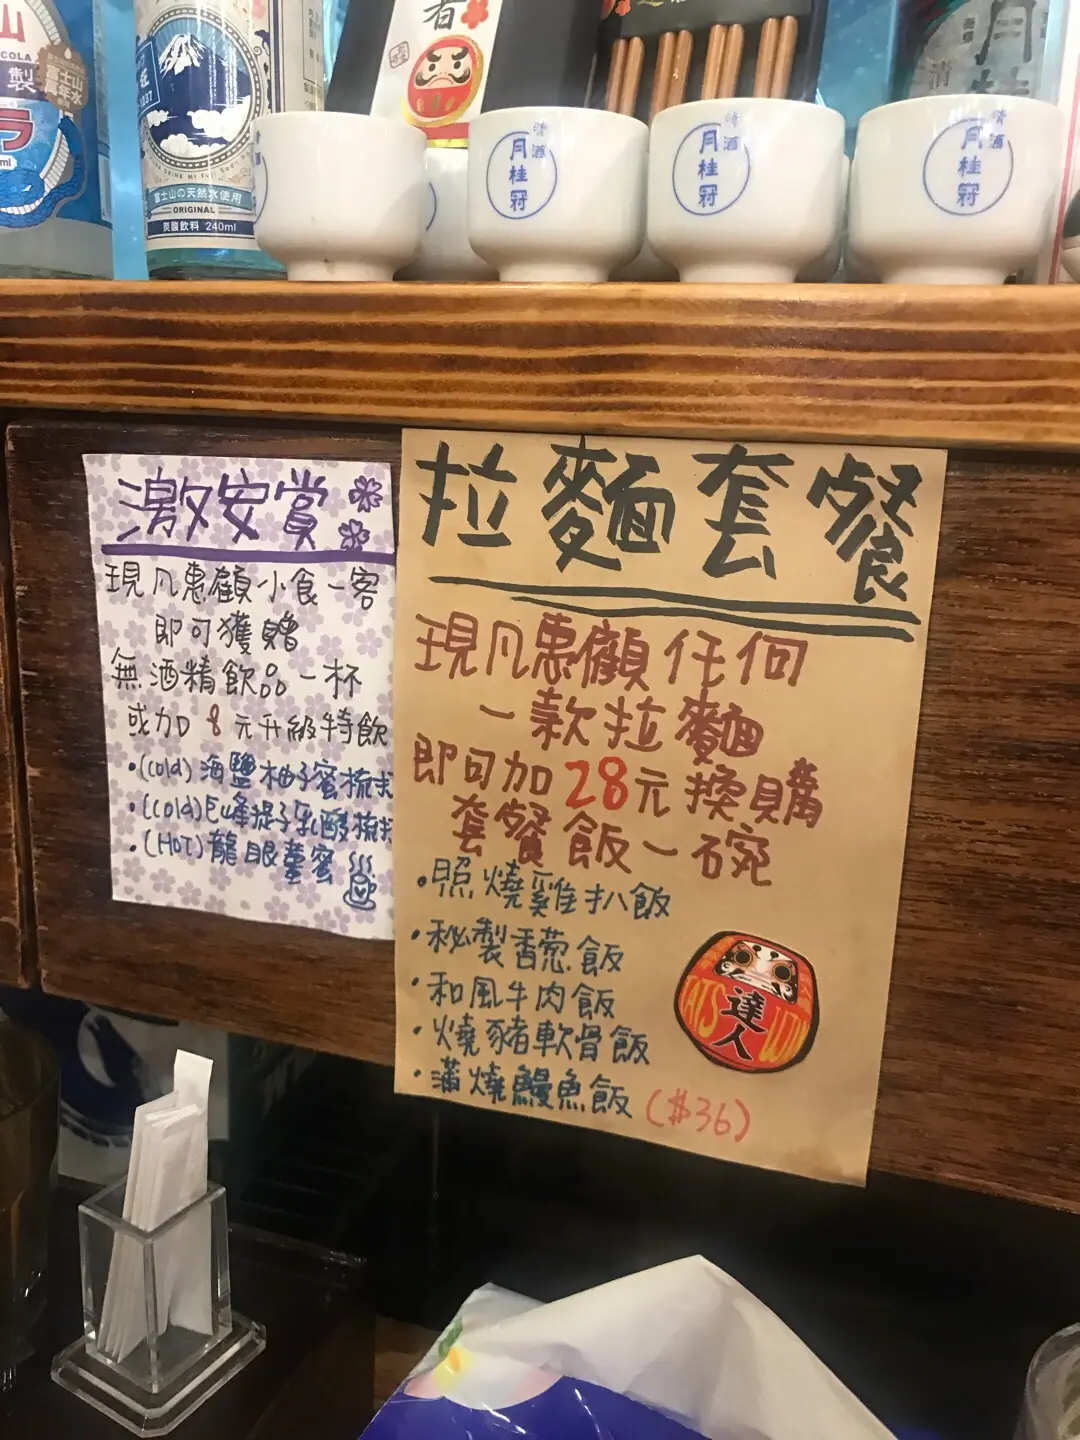 山
COLA
富士山
萬年水
製
ラ
ml
1237
富士山の天然水使用
ORIGINAL
炭酸飲料 240ml
者
清
月
清酒
月桂冠
清酒
月桂冠
清酒
月桂冠
激安賞
現凡惠顧小食一客
即可獲贈
無酒精飲品一杯
或加8元升級特飲
•(cold)海鹽柚子蜜梳打
•(cold)巨峰提子乳酸梳打
•(HOT)龍眼薑蜜
拉麵套餐
現凡惠顧任何
一款拉麵
即可加28元換購
套餐飯一碗
•照燒雞扒飯
•秘製香葱飯
•和風牛肉飯
•燒豬軟骨飯
•蒲燒鰻魚飯($36)
達人